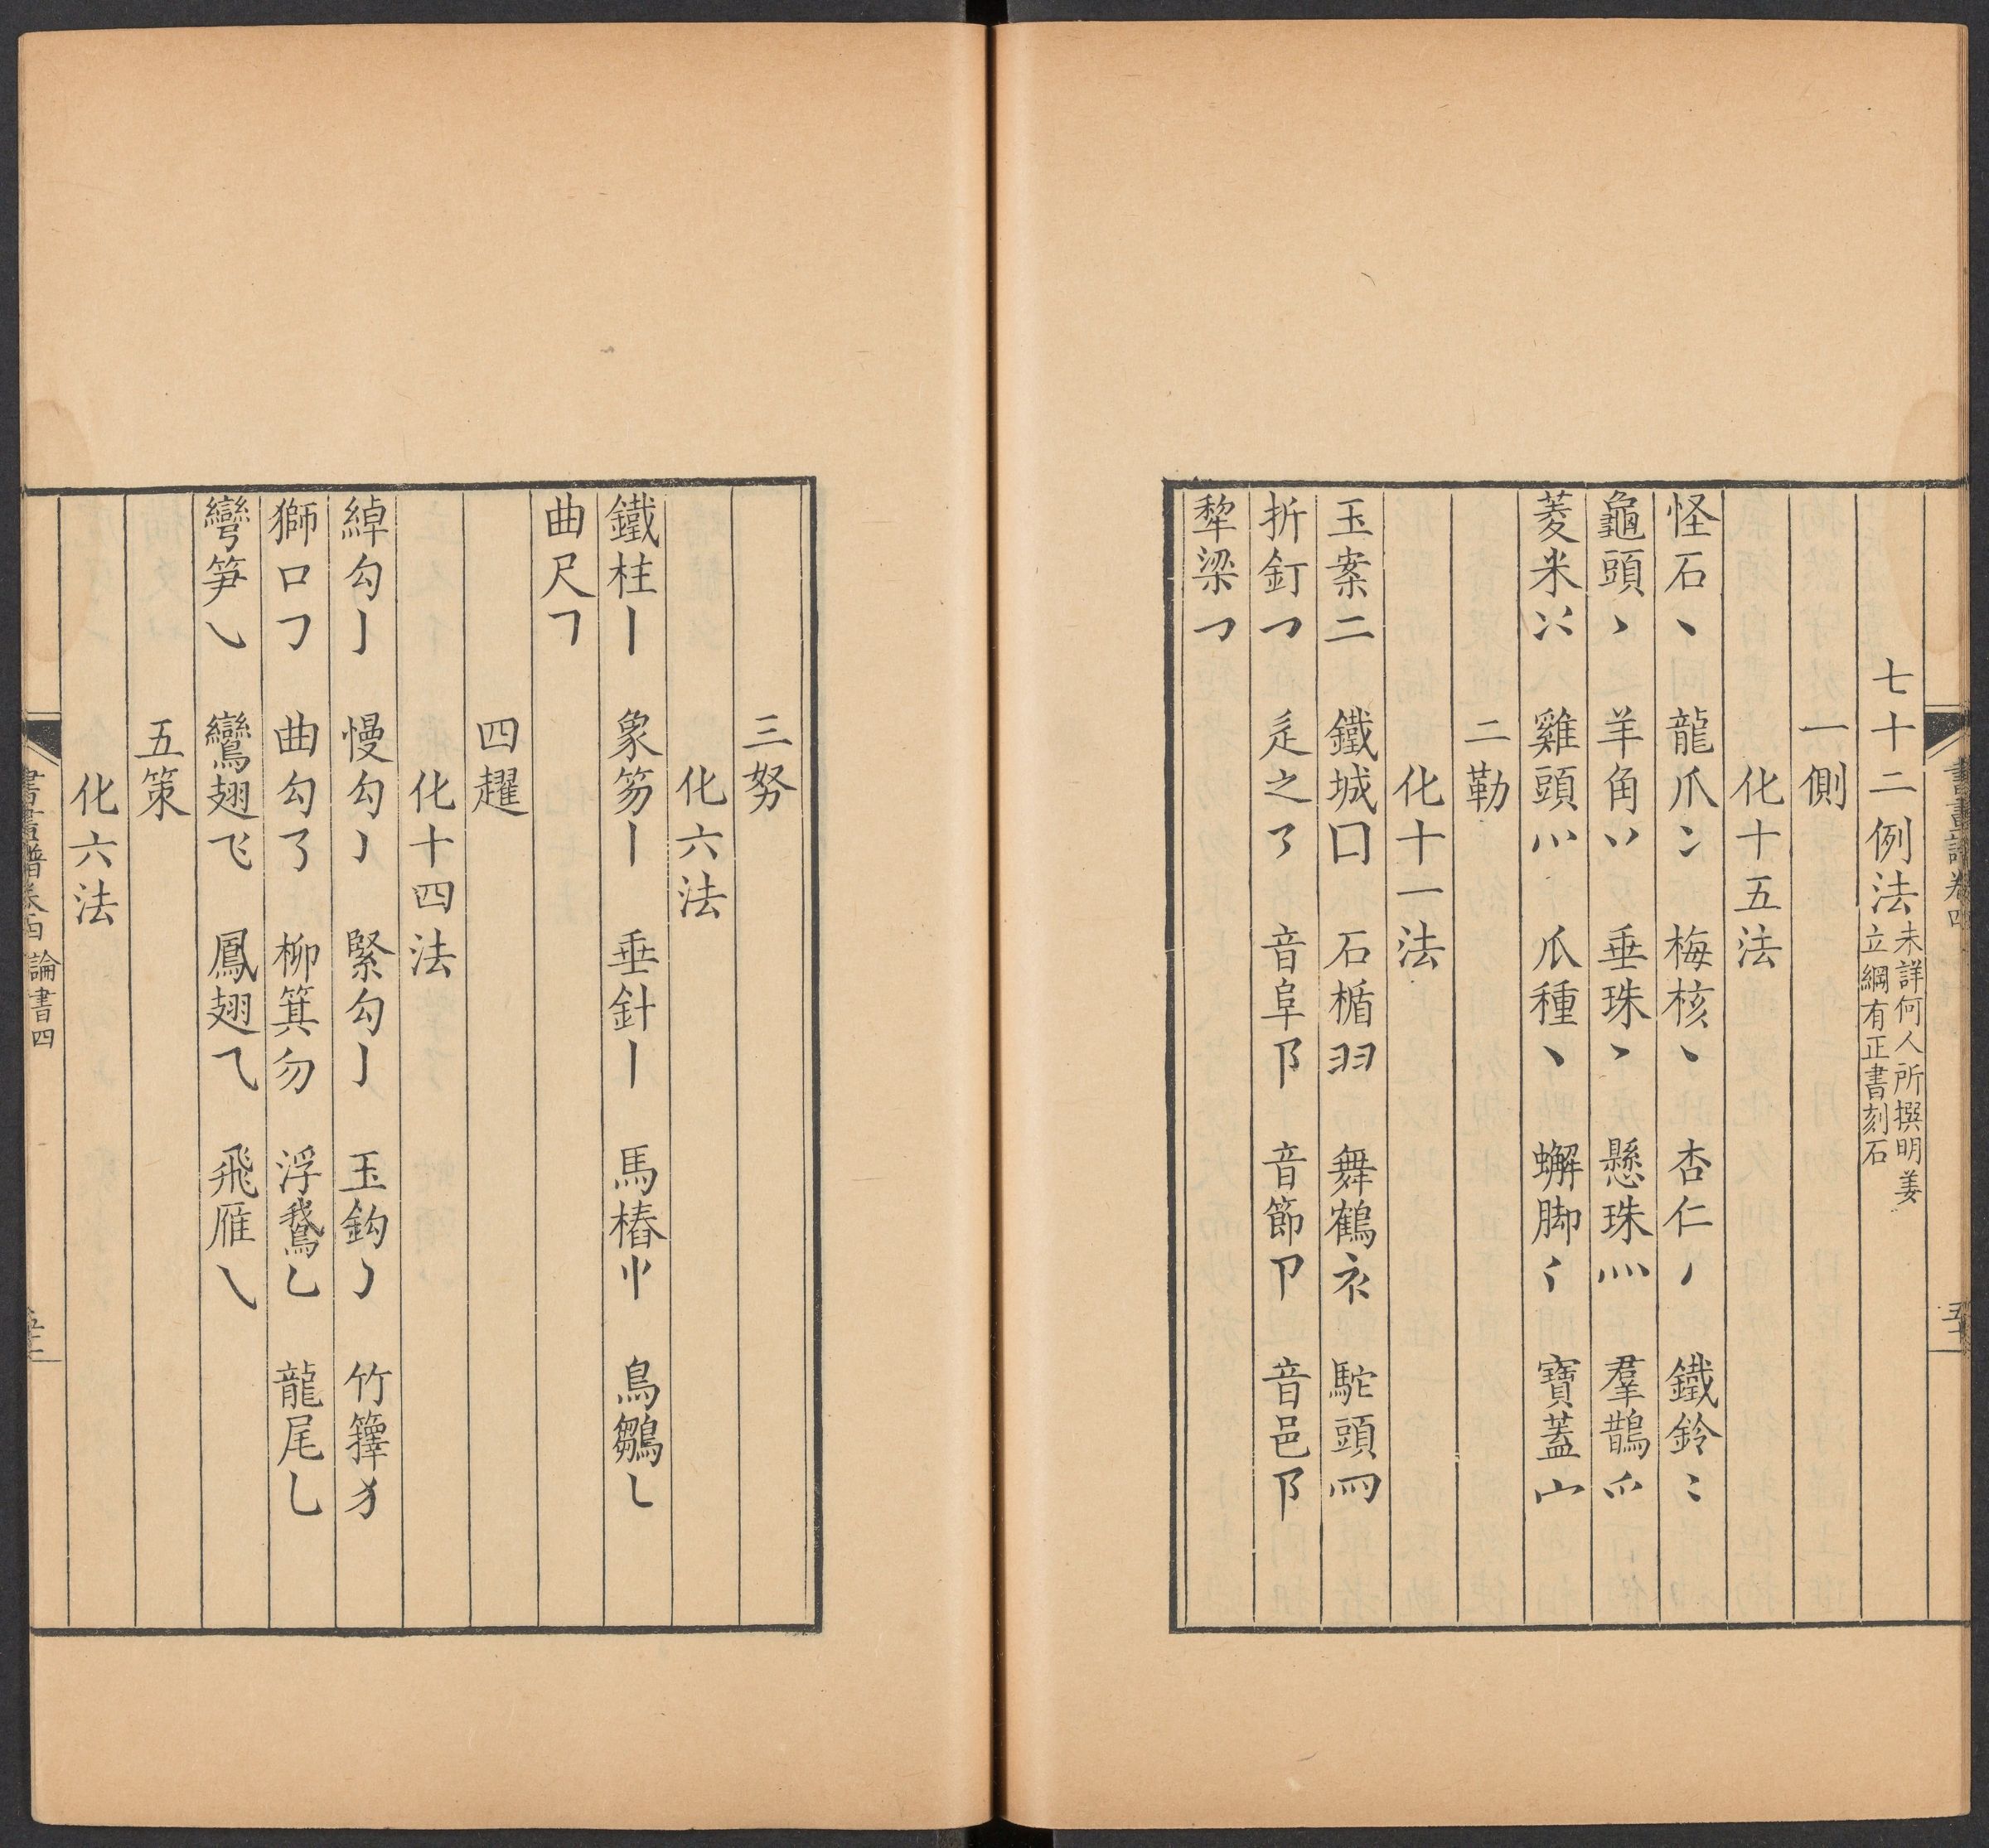 七十二例法未詳何人所撰明姜
立綱有正書刻石
一側
化十五法
怪石丶 龍爪冫 梅核丶 杏仁丿 鐵鈴
龜頭 羊角丷 垂珠 懸珠灬 羣鵲爫
菱米 雞頭 爪種丶 蠏脚 寶蓋宀
二勒
化十一法
玉案二 鐵城囗 石楯 舞鶴衣 駝頭罒
折釘㇇ 辵之 音阜阝 音節卩 音邑阝
犂梁㇇
三努
化六法
鐵柱丨 象笏丨 垂針丨 馬樁 鳥鶵
曲尺
四趯
化十四法
綽勾亅 慢勾 緊勾亅 玉鈎 竹籜犭
獅口 曲勾 柳箕勿 浮鵞乚 龍尾乚
彎笋㇃ 鸞翅飞 鳳翅⺄ 飛雁㇂
五策
化六法
書畫譜卷四 論書四